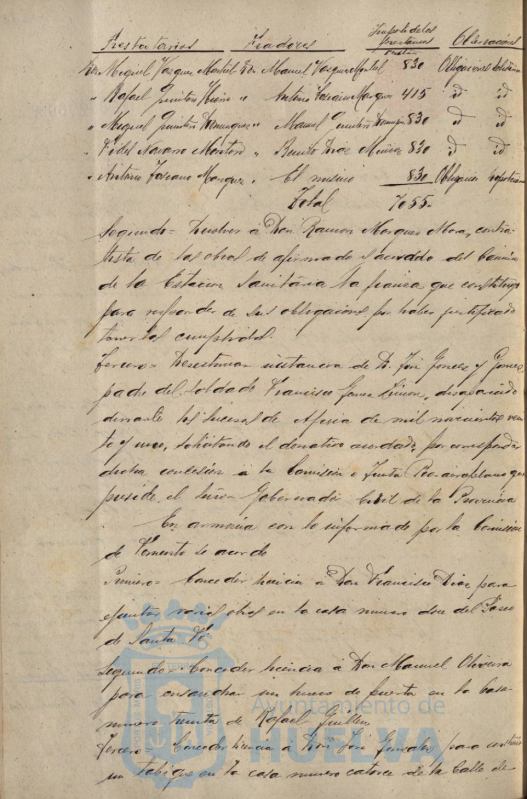 Prestatarios Fiadores Importe de los préstamos Pesetas Observaciones
Don Miguel Vazquez Don Manuel Vazquez 830
" Rafael Quintero " Antonio Marquez 415 id id
" Miguel Quintero Dominguez " Manuel Quintero 830 id id
" Fidel Navarro " Benito Diaz 830 id id
" Antonio Marquez " El mismo 830
Total 7055"
Segundo= Devolver a Don Ramon Marquez Mora, contra-
tista de las obras de afirmado y acerado del Camino
de la Estacion Sanitaria la fianza que constituyó
para responder de sus obligaciones por haber justificado
tenerlas cumplidas.
Tercero= Desestimar instancia de D. José Gomez y Gomez
padre del soldado Francisco Gomez, desaparecido
durante los sucesos de Africa de mil novecientos vein-
te y uno, solicitando el donativo acordado, por corresponder
dicha concesión a la Comisión o Junta Pro-aeroplano que
preside el Señor Gobernador Civil de la Provincia
En armonia con lo informado por la Comisión
de Fomento se acordó
Primero= Conceder licencia a Don Francisco Diaz para
ejecutar varias obras en la casa numero dos del Paseo
de Santa Fé
Segundo= Conceder licencia a Don Manuel Oliveira
para ensanchar un hueco de puerta en la casa
numero treinta de Rafael Guillen
Tercero= Conceder licencia a Don José Gonzalez para construir
un tabique en la casa numero catorce de la Calle de
Ayuntamiento de
HUELVA